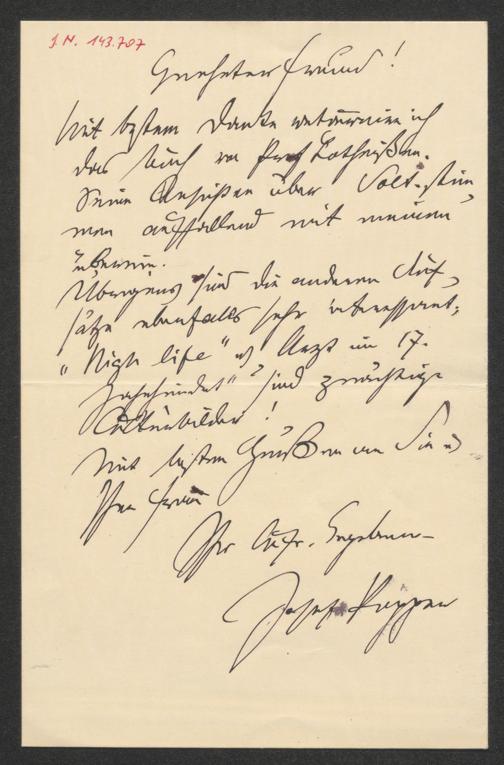 J.N. 143.707
Geehrter Freund!
Mit bestem Danke retourniere ich
das Buch von Prof. Lotheißen.
Seine Ansichten über Volt. stim
men auffallend mit meinen
überein.
Übrigens sind die anderen Auf-
sätze ebenfalls sehr interessant;
"High life" u Arzt im 17.
Jahrhundert" sind prächtige
Culturbilder!
Mit besten Grüßen an Sie u
Ihre Frau
Ihr aufr. Ergebener
Josef Popper